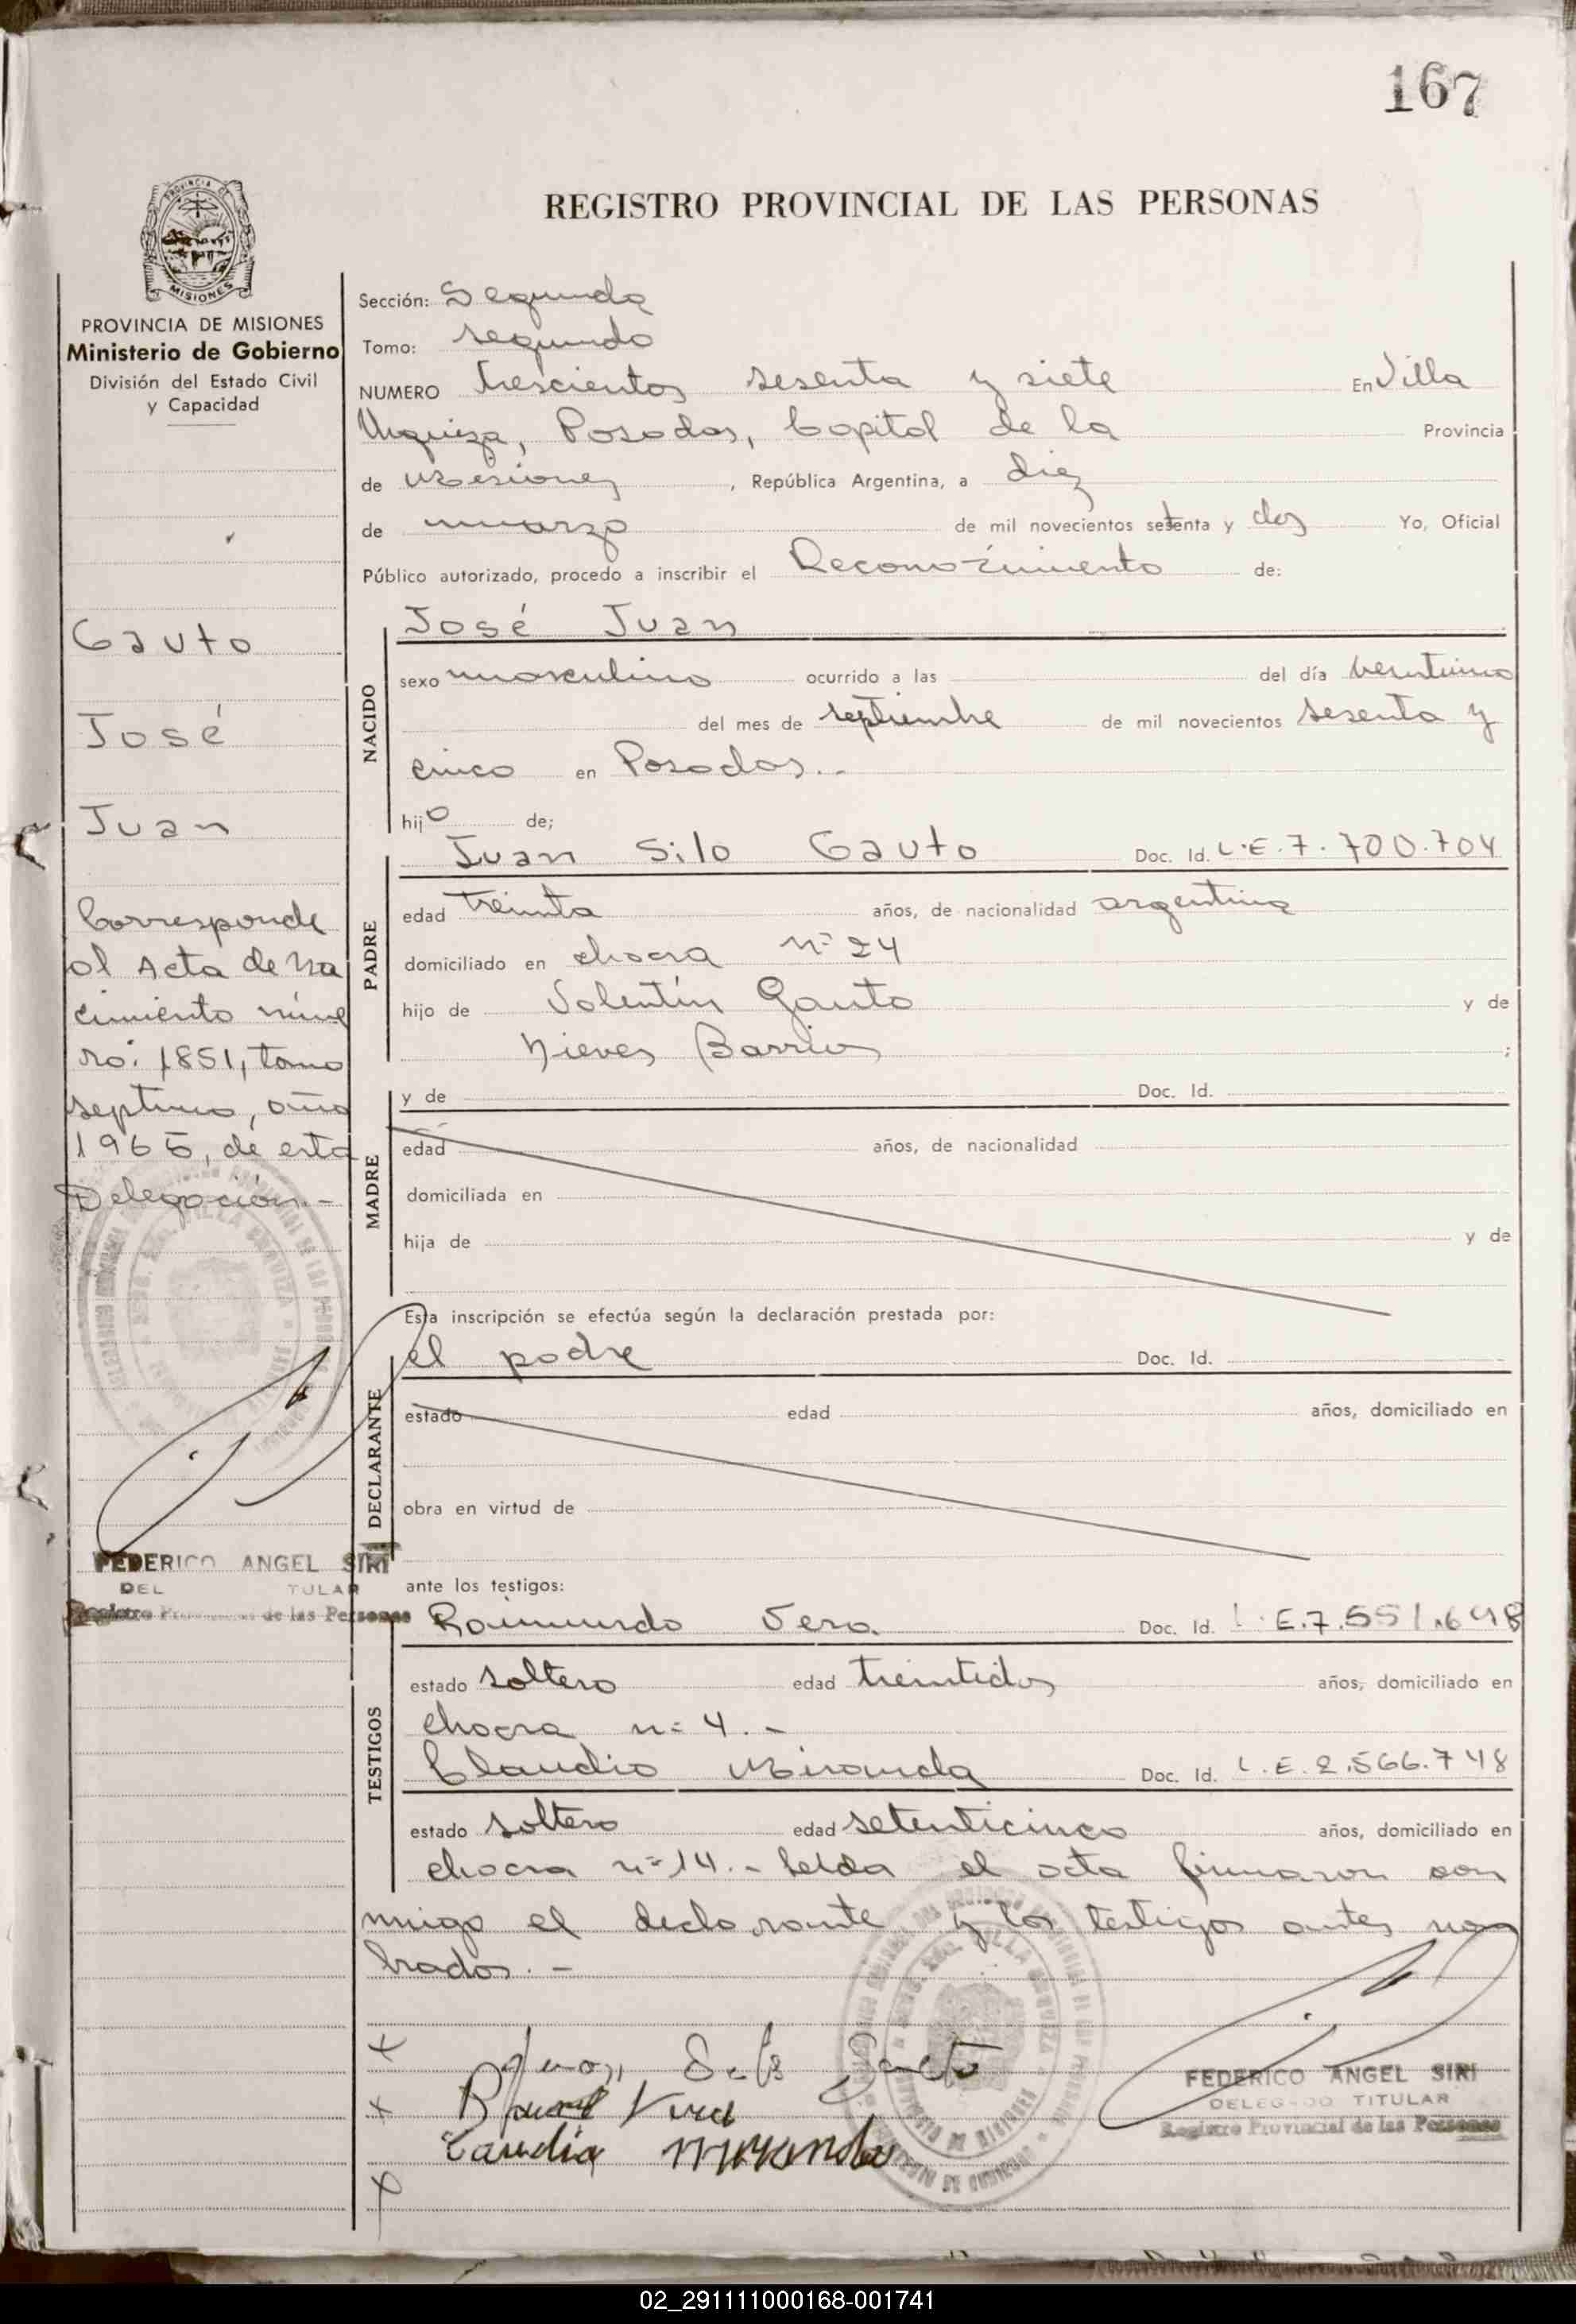 167
REGISTRO PROVINCIAL DE LAS PERSONAS
PROVINCIA DE MISIONES
MISIONES
PROVINCIA DE MISIONES
Ministerio de Gobierno
División del Estado Civil
y Capacidad
Gauto
José
Juan
Corresponde
al Acta de Na
cimiento núme
ro: 1851, tomo
septimo, año
1965, de esta
Delegación.-
FEDERICO ANGEL SIRI
DEL TULAR
Registro de las Personas
Sección: Segunda
Tomo: segundo
NUMERO trescientos sesenta y siete En Villa
Urquiza, Posadas, Capital de la Provincia
de Misiones, República Argentina, a diez
de marzo de mil novecientos setenta y dos Yo, Oficial
Público autorizado, procedo a inscribir el Reconocimiento de:
NACIDO
José Juan
sexo masculino ocurrido a las del día veintiuno
del mes de septiembre de mil novecientos sesenta y
cinco en Posadas.-
hijo de;
PADRE
Juan Silo Gauto Doc. Id. L.E.7.700.704
edad treinta años, de nacionalidad argentina
domiciliado en chacra nº 24
hijo de Valentín Gauto y de
Nieves Barrios ;
MADRE
y de Doc. Id.
edad años, de nacionalidad
domiciliada en
hija de y de
Esta inscripción se efectúa según la declaración prestada por:
DECLARANTE
el padre Doc. Id.
estado edad años, domiciliado en
obra en virtud de
ante los testigos:
TESTIGOS
Raimundo Vera Doc. Id. L.E.7.551.648
estado soltero edad treintidos años, domiciliado en
chacra nº 4.-
Claudio Miranda Doc. Id. L.E.2.566.748
estado soltero edad setenticinco años, domiciliado en
chacra nº 14.- Leída el acta firmaron con
migo el declarante y los testigos antes nom
brados.-
Juan Silo Gauto
Vera
Claudio Miranda
FEDERICO ANGEL SIRI
DELEGADO TITULAR
Registro Provincial de las Personas
02_291111000168-001741